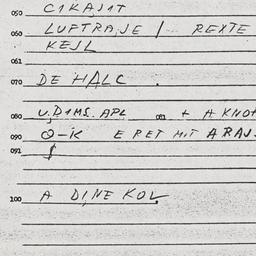 050 CIKAJIT
060 LUFTRAJE / REXTE
KEJL
061
070 DE HALC .
080 U,DIMS. APL 081 + A KNOT
090 Q-K E RET MIT ARAJ.
091 $
100 A DINE KOV